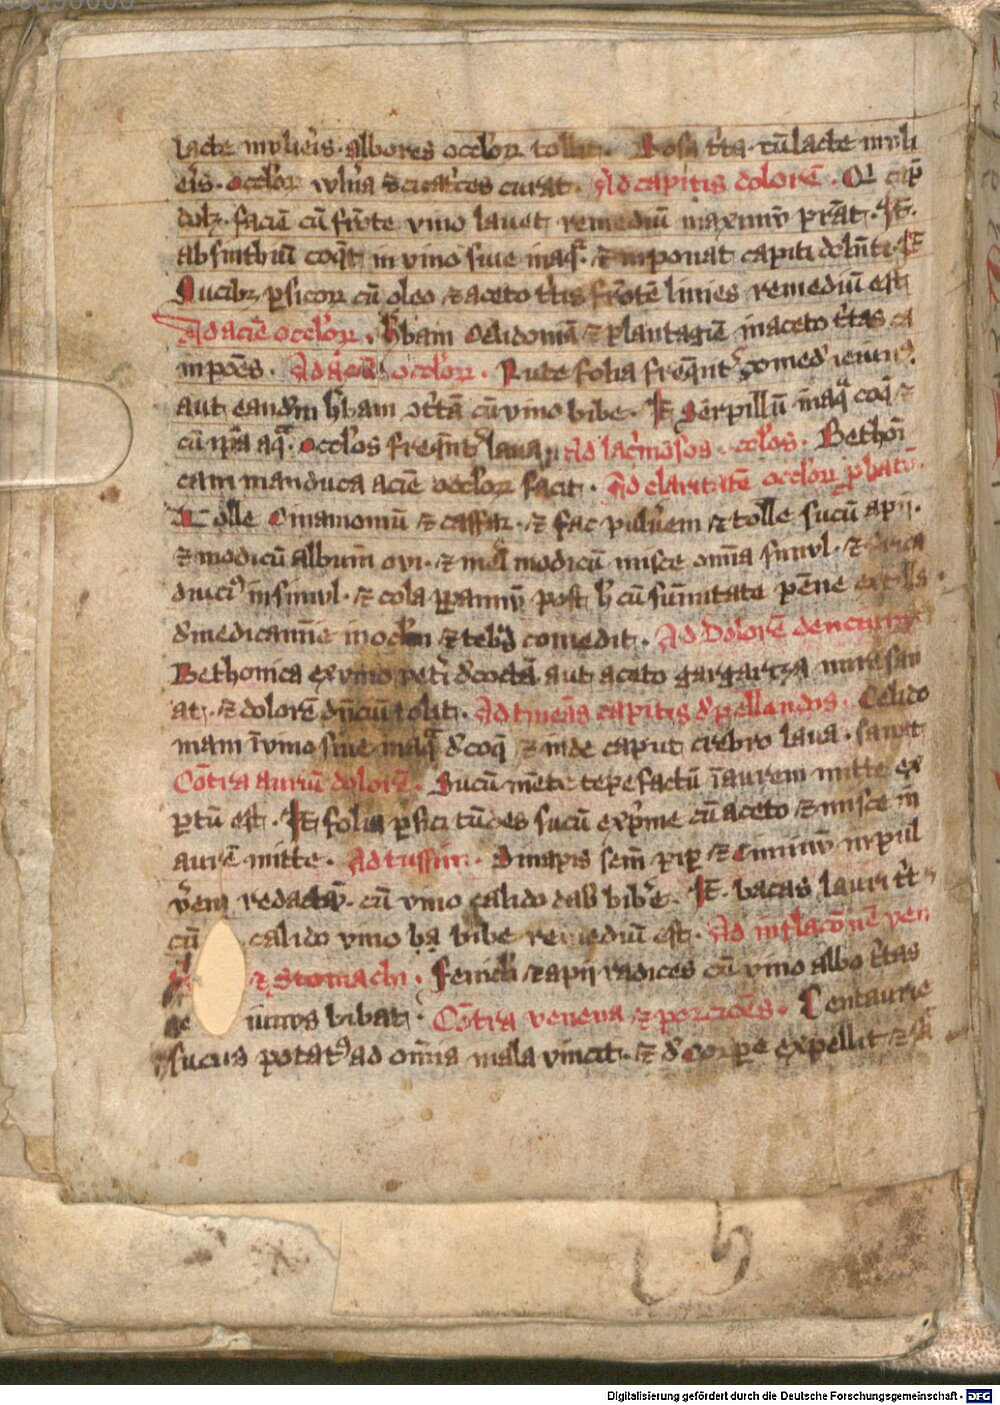 lacte mulieris. albores oclor tollit. Rosa trita cū lacte muli
eris. oclor vulnera & cicatrices curat. Ad capitis dolorē. Qi cap
dolz. faciē cū frōte vino lauet remediū maximū prāt. It.
absinthiū coqt in vino siue in aq. & inponat capiti dolenti. It
Nucibz psicor cū oleo & aceto tritis frōtē linies remediū est
Ad aciē oclor. hbam Celidoniā & plantaginē in aceto tritas
inpoēs. Ad aciē oclor. Rute folia freqnt comed ieiun9.
aut eandem hbam trita cū vino bibe. It Serpillū in aq coq &
cū ipa aq. oclos freqnt laua. Ad lacrimosos oclos. Bethoni
cam manduca aciē oclor facit. Ad claritatē oclor pbatū.
Tolle Cinamomū & cassiar. & fac pulverem & tolle sucū apii.
& modicū album ovi. & mel modicū misce omīa simul. &
diuci9 insimul. & cola p pannū post h cū sūmitate pēne
d medicamine in oclm & comedit. Ad Dolorē denciū
Bethonica ex vino veteri dcocta aut aceto gargariza
at. & dolorē denciū tollit. Ad tineas capitis dpellandas. Celido
niam ī vino siue in aq dcoq & inde caput crebro laua. sanat
Cōtra auriū dolorē. Sucū mente tepefactū ī aurem mitte ex
ptū est. It folia psici tūdes sucū exprime cū aceto & misce in
aurē mitte. Ad tussim. Sinapis sem pip & Ciminū in pul
verem redactū. cū vino calido dab bibe. It. bacas lauri trit
cū calido vino bibe remediū est. Ad inflacōnē ven
& Stomachi. Feniculi & apii radices cū vino albo tritas
ge iunus bibat. Cōtra venena & porciōes. Centaurie
sucus potat9 ad omīa mala vincit. & d corpe expellit &
Digitalisierung gefördert durch die Deutsche Forschungsgemeinschaft - DFG